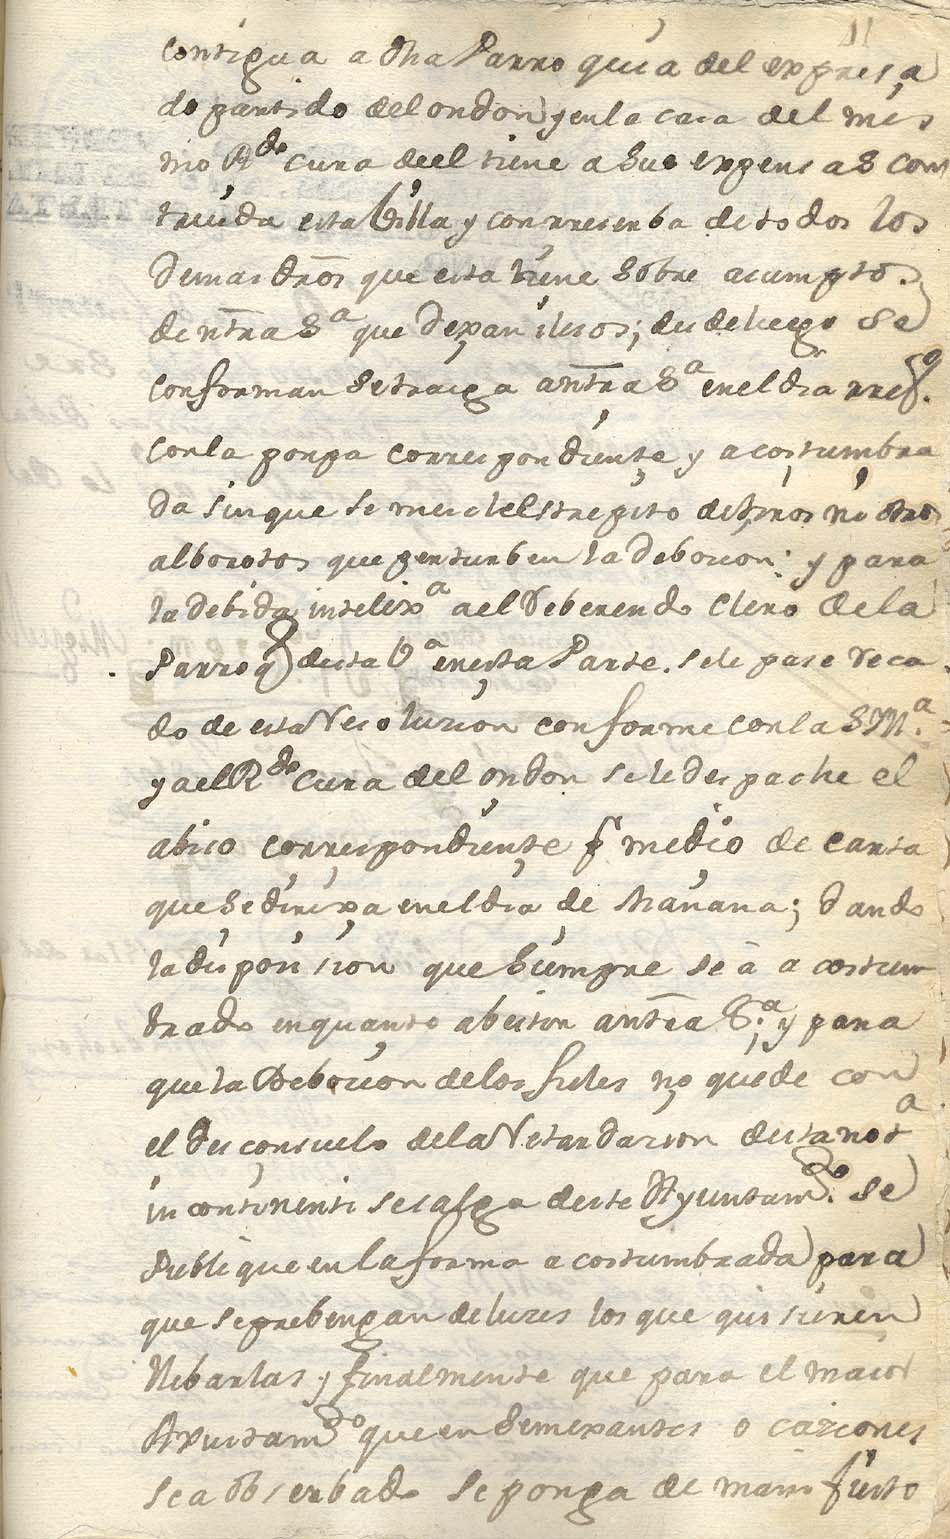 11
contigua a dha Parroquia del expresa
do partido del ondon y en la casa del mis
mo Rdo cura de el tiene a sus expensas cons
truida esta Villa y con rreserba de todos los
demas dros que esta tiene sobre acumpto
de ntra Sa que dexan ilesos; desde luego se
conforman se traiga a ntra Sa en el dia rrefo.
con la ponpa correspondiente y acostumbra
da sin que se mescle el strepito de tiros ni otros
alborotos que perturben la debocion; y para
la debida intelixa a el Reberendo Clero de la
Parroqa desta Va en esta Parte. se le pase reca
do de esta resoluzion conforme con la SYMa.
y a el Rdo Cura del ondon se le despache el
abiso correspondiente pr medio de carta
que se dirixa en el dia de Mañana; dando
la disposision que siempre se à acostum
brado en quanto abestir a ntra Sa; y para
que la Debocion de los fieles no quede con
el desconsuelo de la retardazion desta nota
incontinenti se salga deste Ayuntamto. se
Publique en la forma acostumbrada para
que se prebengan de luzes los que quisieren
llebarlas y finalmente que para el maior
Axustamto que en semexantes ocaziones
se a obserbado se ponga de manifiesto